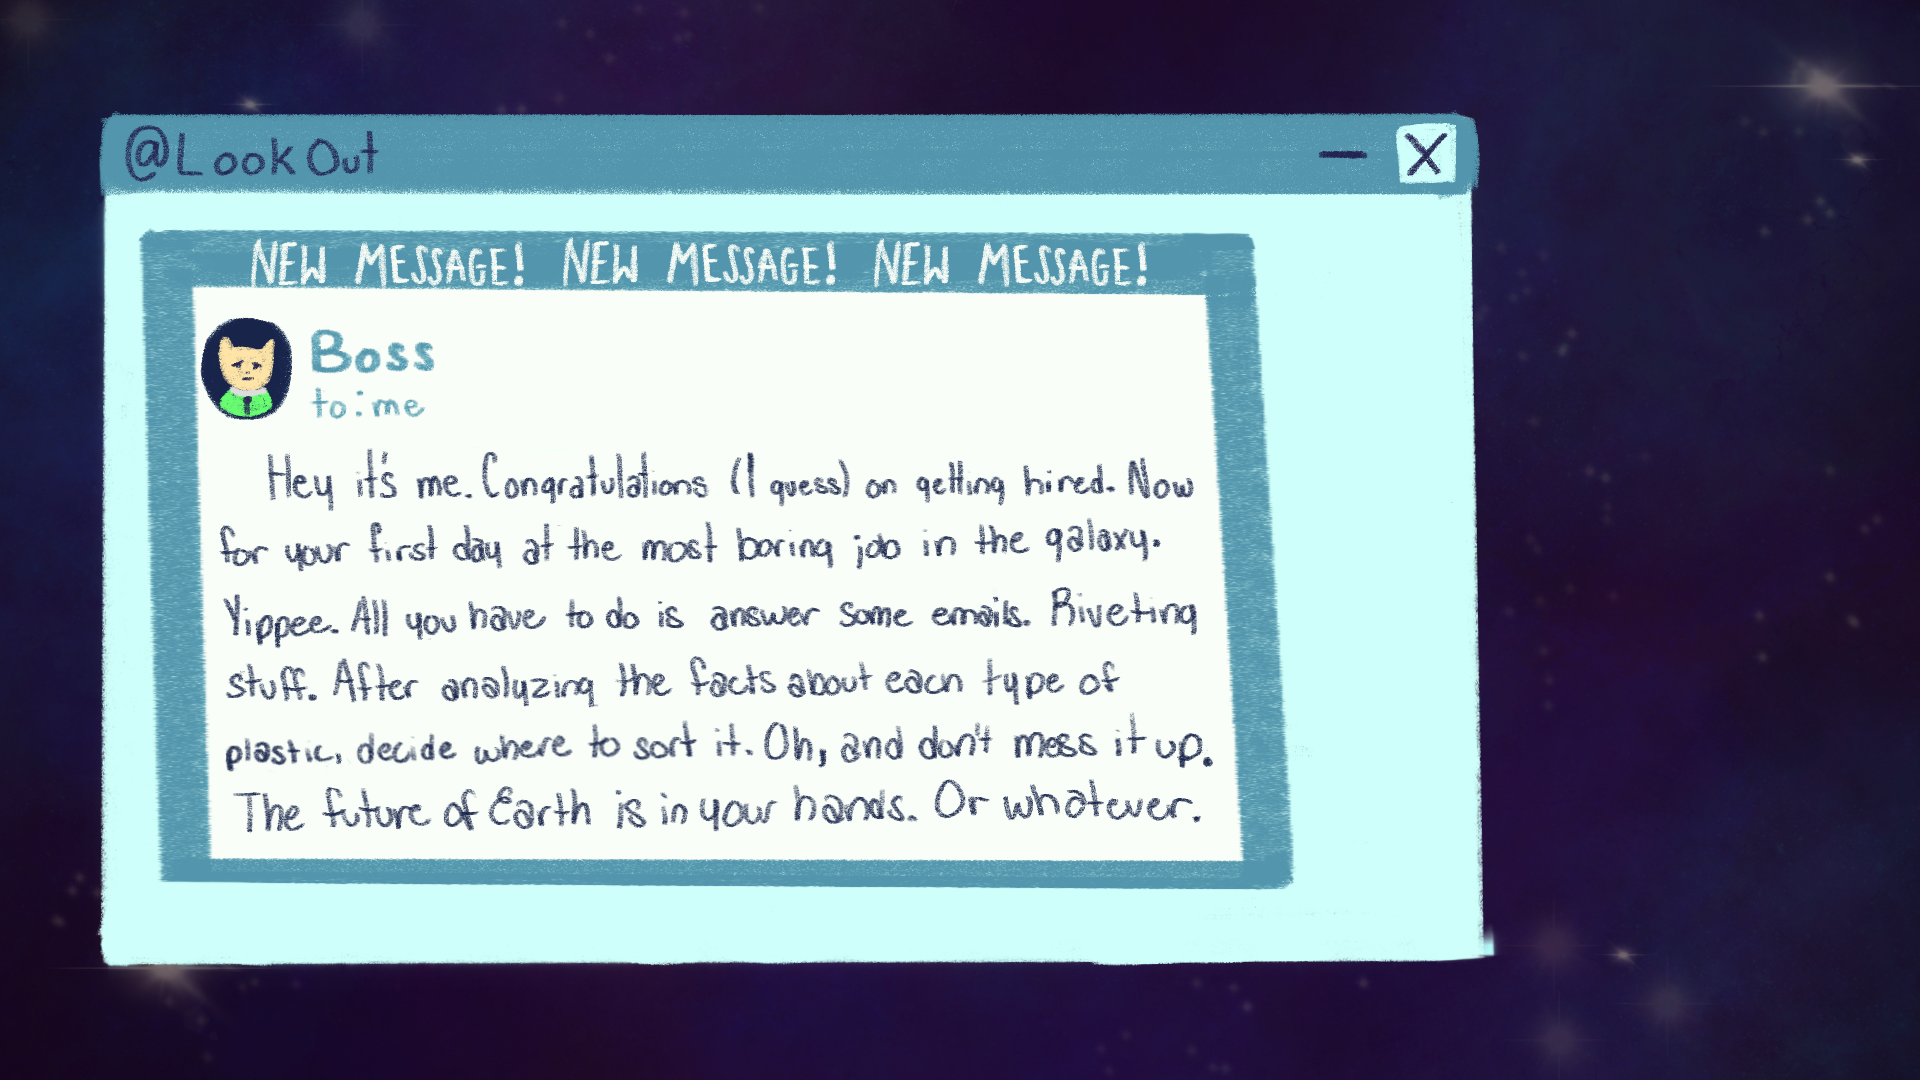 @LookOut
NEW MESSAGE! NEW MESSAGE! NEW MESSAGE!
Boss
to:me
Hey it's me. Congratulations (I guess) on getting hired. Now
for your first day at the most boring job in the galaxy.
Yippee. All you have to do is answer some emails. Riveting
stuff. After analyzing the facts about each type of
plastic, decide where to sort it. Oh, and don't mess it up.
The future of Earth is in your hands. Or whatever.